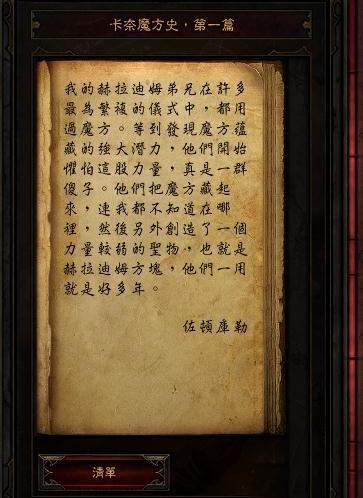 卡奈魔方史，第一篇
我的赫拉迪姆弟兄在許多
最為繁複的儀式中，都用
過魔方。等到發現魔方蘊
藏的強大潛力，他們開始
懼怕這股力量，真是一群
傻子。他們把魔方藏起
來，連我都不知道在哪
裡，然後另外創造了一個
力量較弱的聖物，也就是
赫拉迪姆方塊，他們一用
就是好多年。
佐頓庫勒
清單